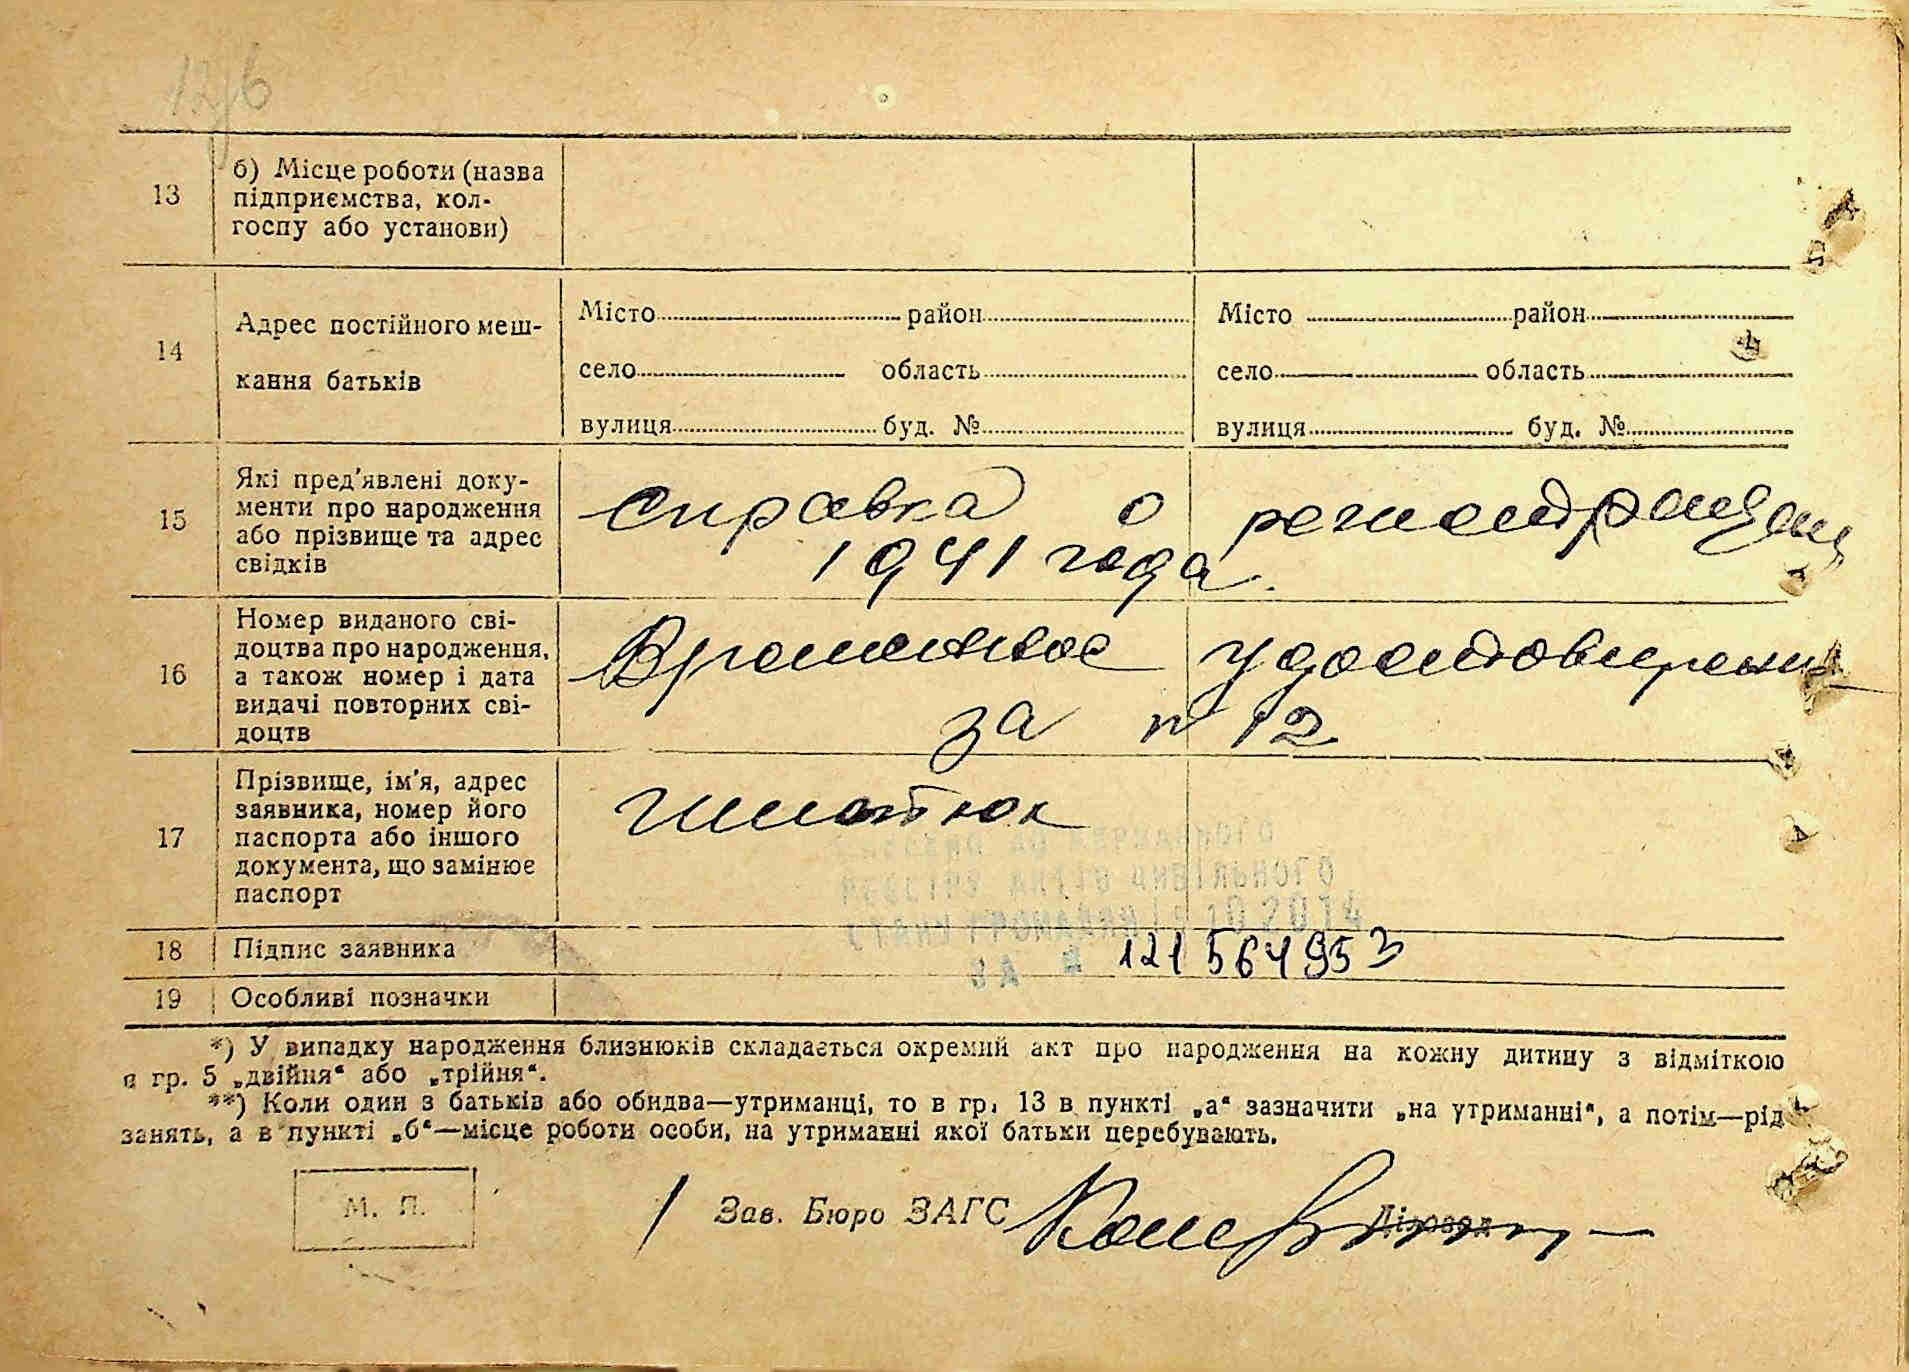 12/6
13
б) Місце роботи (назва
підприємства, кол-
госпу або установи)
14
Адрес постійного меш-
кання батьків
Місто район
село область
вулиця буд. №
Місто район
село область
вулиця буд. №
15
Які пред'явлені доку-
менти про народження
або прізвище та адрес
свідків
справка о регистрации
1941 года.
16
Номер виданого сві-
доцтва про народження,
а також номер і дата
видачі повторних сві-
доцтв
Временное удостоверение
за № 12
17
Прізвище, ім'я, адрес
заявника, номер його
паспорта або іншого
документа, що замінює
паспорт
ДО ДЕРЖАВНОГО
РЕЄСТРУ АКТІВ ЦИВІЛЬНОГО
СТАНУ ГРОМАДЯН 10 2014
ЗА № 121564953
18
Підпис заявника
19
Особливі позначки
*) У випадку народження близнюків складається окремий акт про народження на кожну дитину з відміткою
в гр. 5 „двійня“ або „трійня“.
**) Коли один з батьків або обидва—утриманці, то в гр. 13 в пункті „а“ зазначити „на утриманні“, а потім—рід
занять, а в пункті „б“—місце роботи особи, на утриманні якої батьки перебувають.
М. П.
Зав. Бюро ЗАГС
Діловод